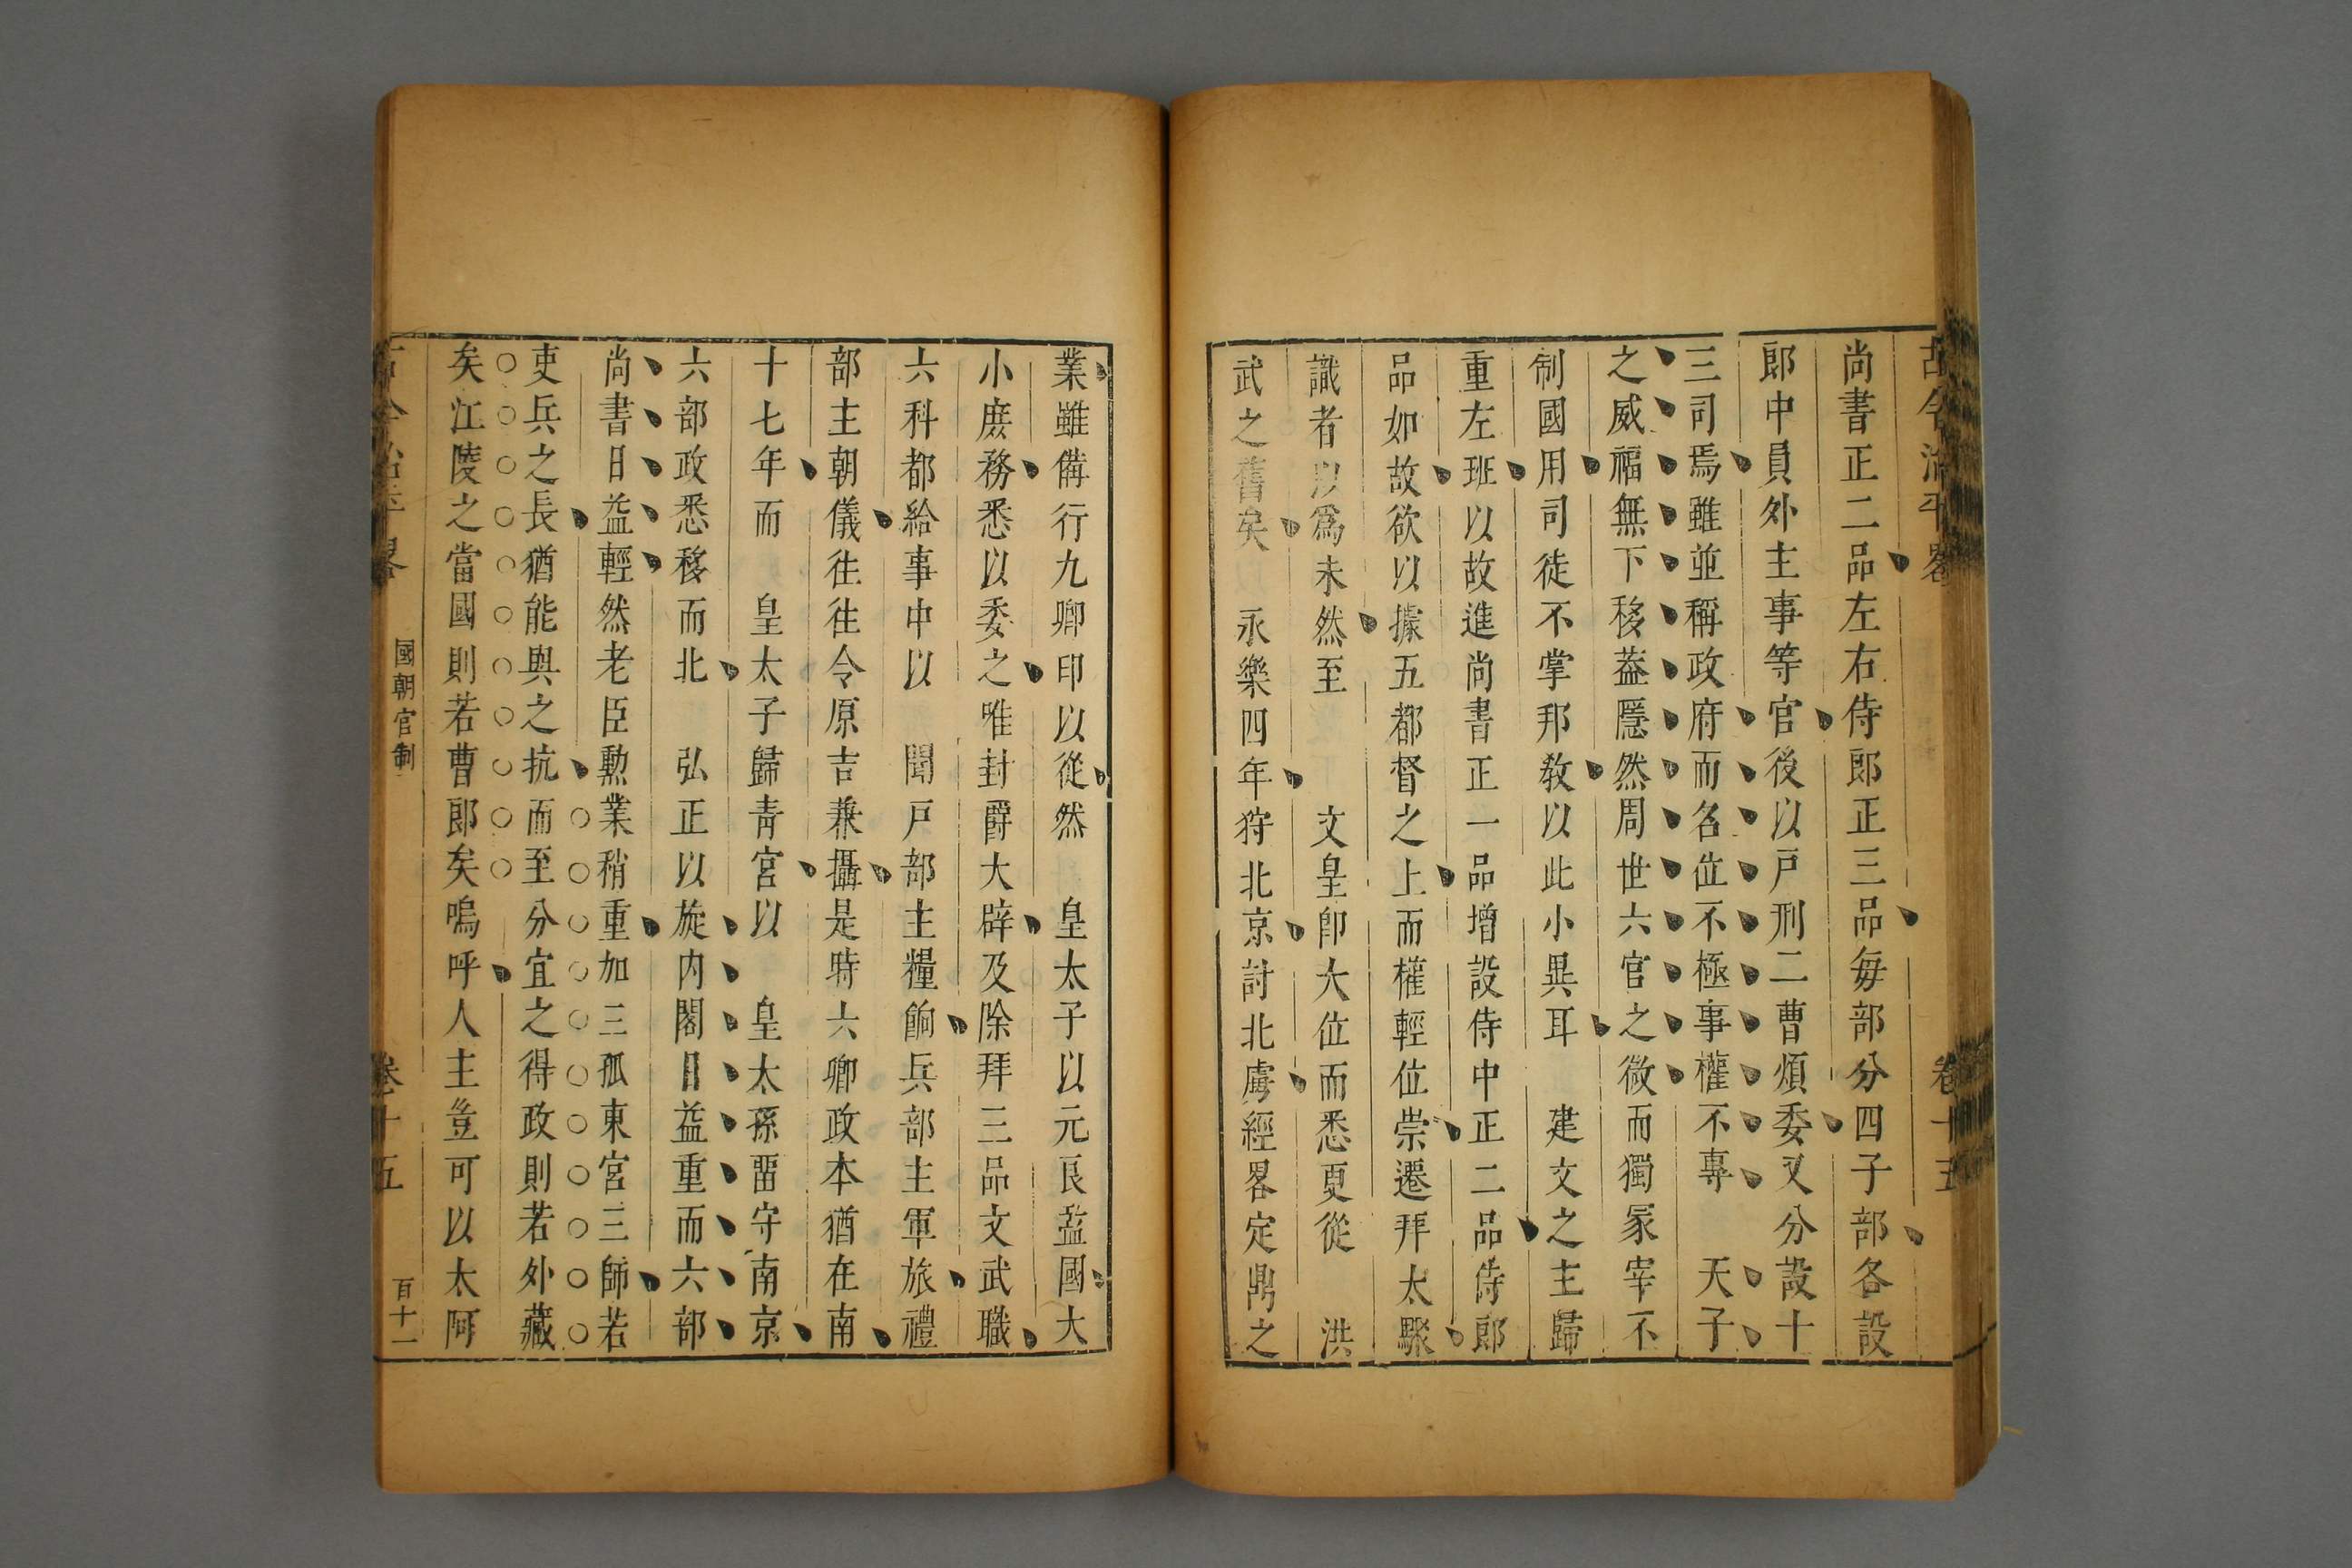 古今治平畧
卷十五
尚書正二品左右侍郎正三品每部分四子部各設
郎中員外主事等官後以戸刑二曹煩委又分設十
三司焉雖並稱政府而名位不極事權不專 天子
之威福無下移葢隱然周世六官之微而獨冢宰不
制國用司徒不掌邦教以此小異耳 建文之主歸
重左班以故進尚書正一品增設侍中正二品侍郎
品如故欲以據五都督之上而權輕位崇遷拜太驟
識者以爲未然至 文皇卽大位而悉更從 洪
武之舊矣 永樂四年狩北京討北虜經畧定鼎之
業雖備行九卿印以從然 皇太子以元良監國大
小庶務悉以委之唯封爵大辟及除拜三品文武職
六科都給事中以 聞戸部主糧餉兵部主軍旅禮
部主朝儀往往令原吉兼攝是時六卿政本猶在南
十七年而 皇太子歸青宮以 皇太孫畱守南京
六部政悉移而北 弘正以旋內閣日益重而六部
尚書日益輕然老臣勲業稍重加三孤東宮三師若
吏兵之長猶能與之抗而至分宜之得政則若外藏
矣江陵之當國則若曹郎矣嗚呼人主豈可以太阿
古今治平畧
國朝官制
卷十五
百十一